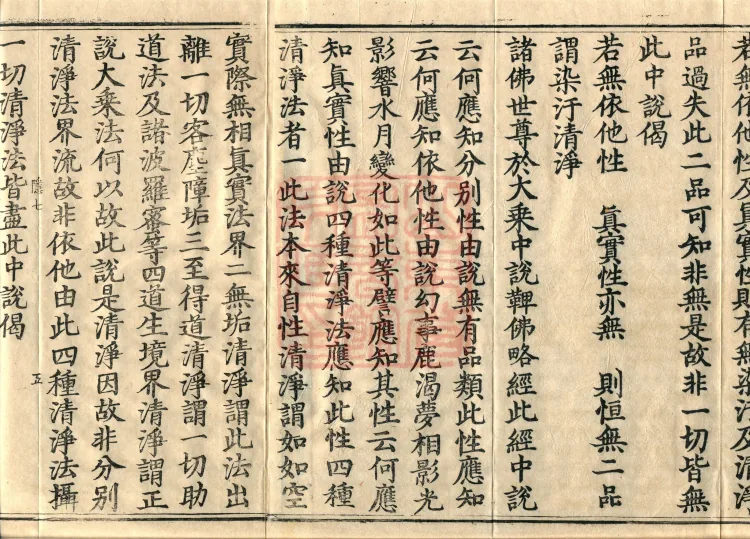 若無依他性及真實性則有無染汙及清淨
品過失此二品可知非無是故非一切皆無
此中說偈
若無依他性　眞實性亦無　則恒無二品
謂染汙清淨
諸佛世尊於大乘中說鞞佛略經此經中說
云何應知分別性由說無有品類此性應知
云何應知依他性由說幻事鹿渴夢相影光
影響水月變化如此等譬應知其性云何應
知眞實性由說四種清淨法應知此性四種
清淨法者一此法本來自性清淨謂如如空
實際無相眞實法界二無垢清淨謂此法出
離一切客塵障垢三至得道清淨謂一切助
道法及諸波羅蜜等四道生境界清淨謂正
說大乘法何以故此說是清淨因故非分別
清淨法界流故非依他由此四種清淨法攝
七
五
一切清淨法皆盡此中說偈